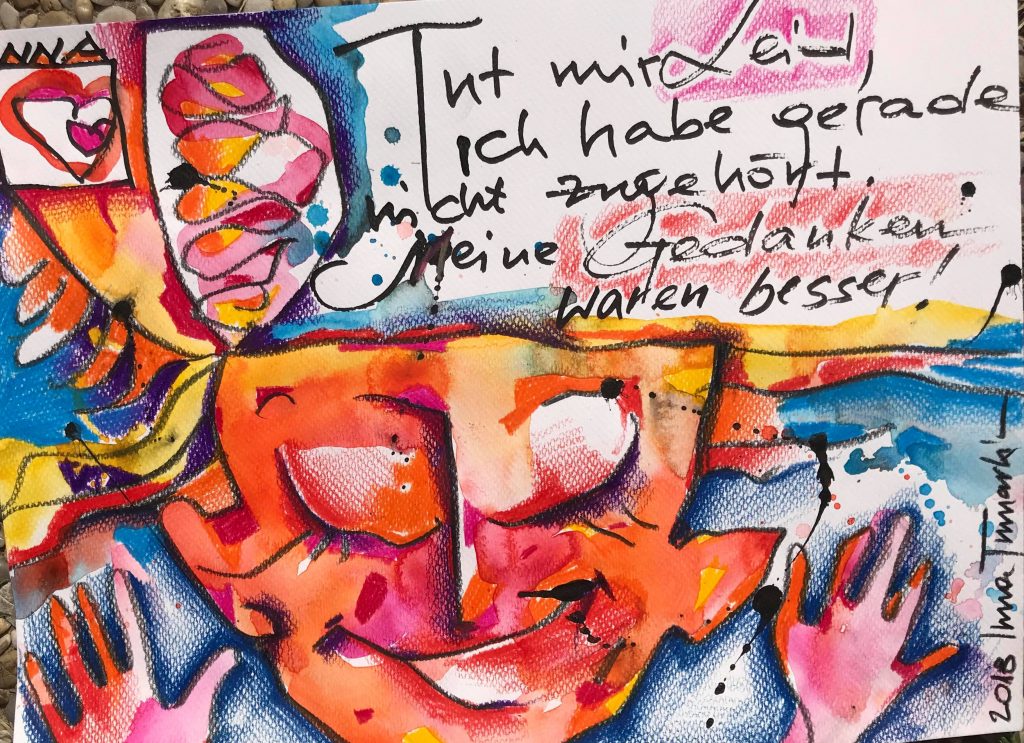 NNA
Tut mir Leid,
ich habe gerade
nicht zugehört.
Meine Gedanken
waren besser!
2018 Inna